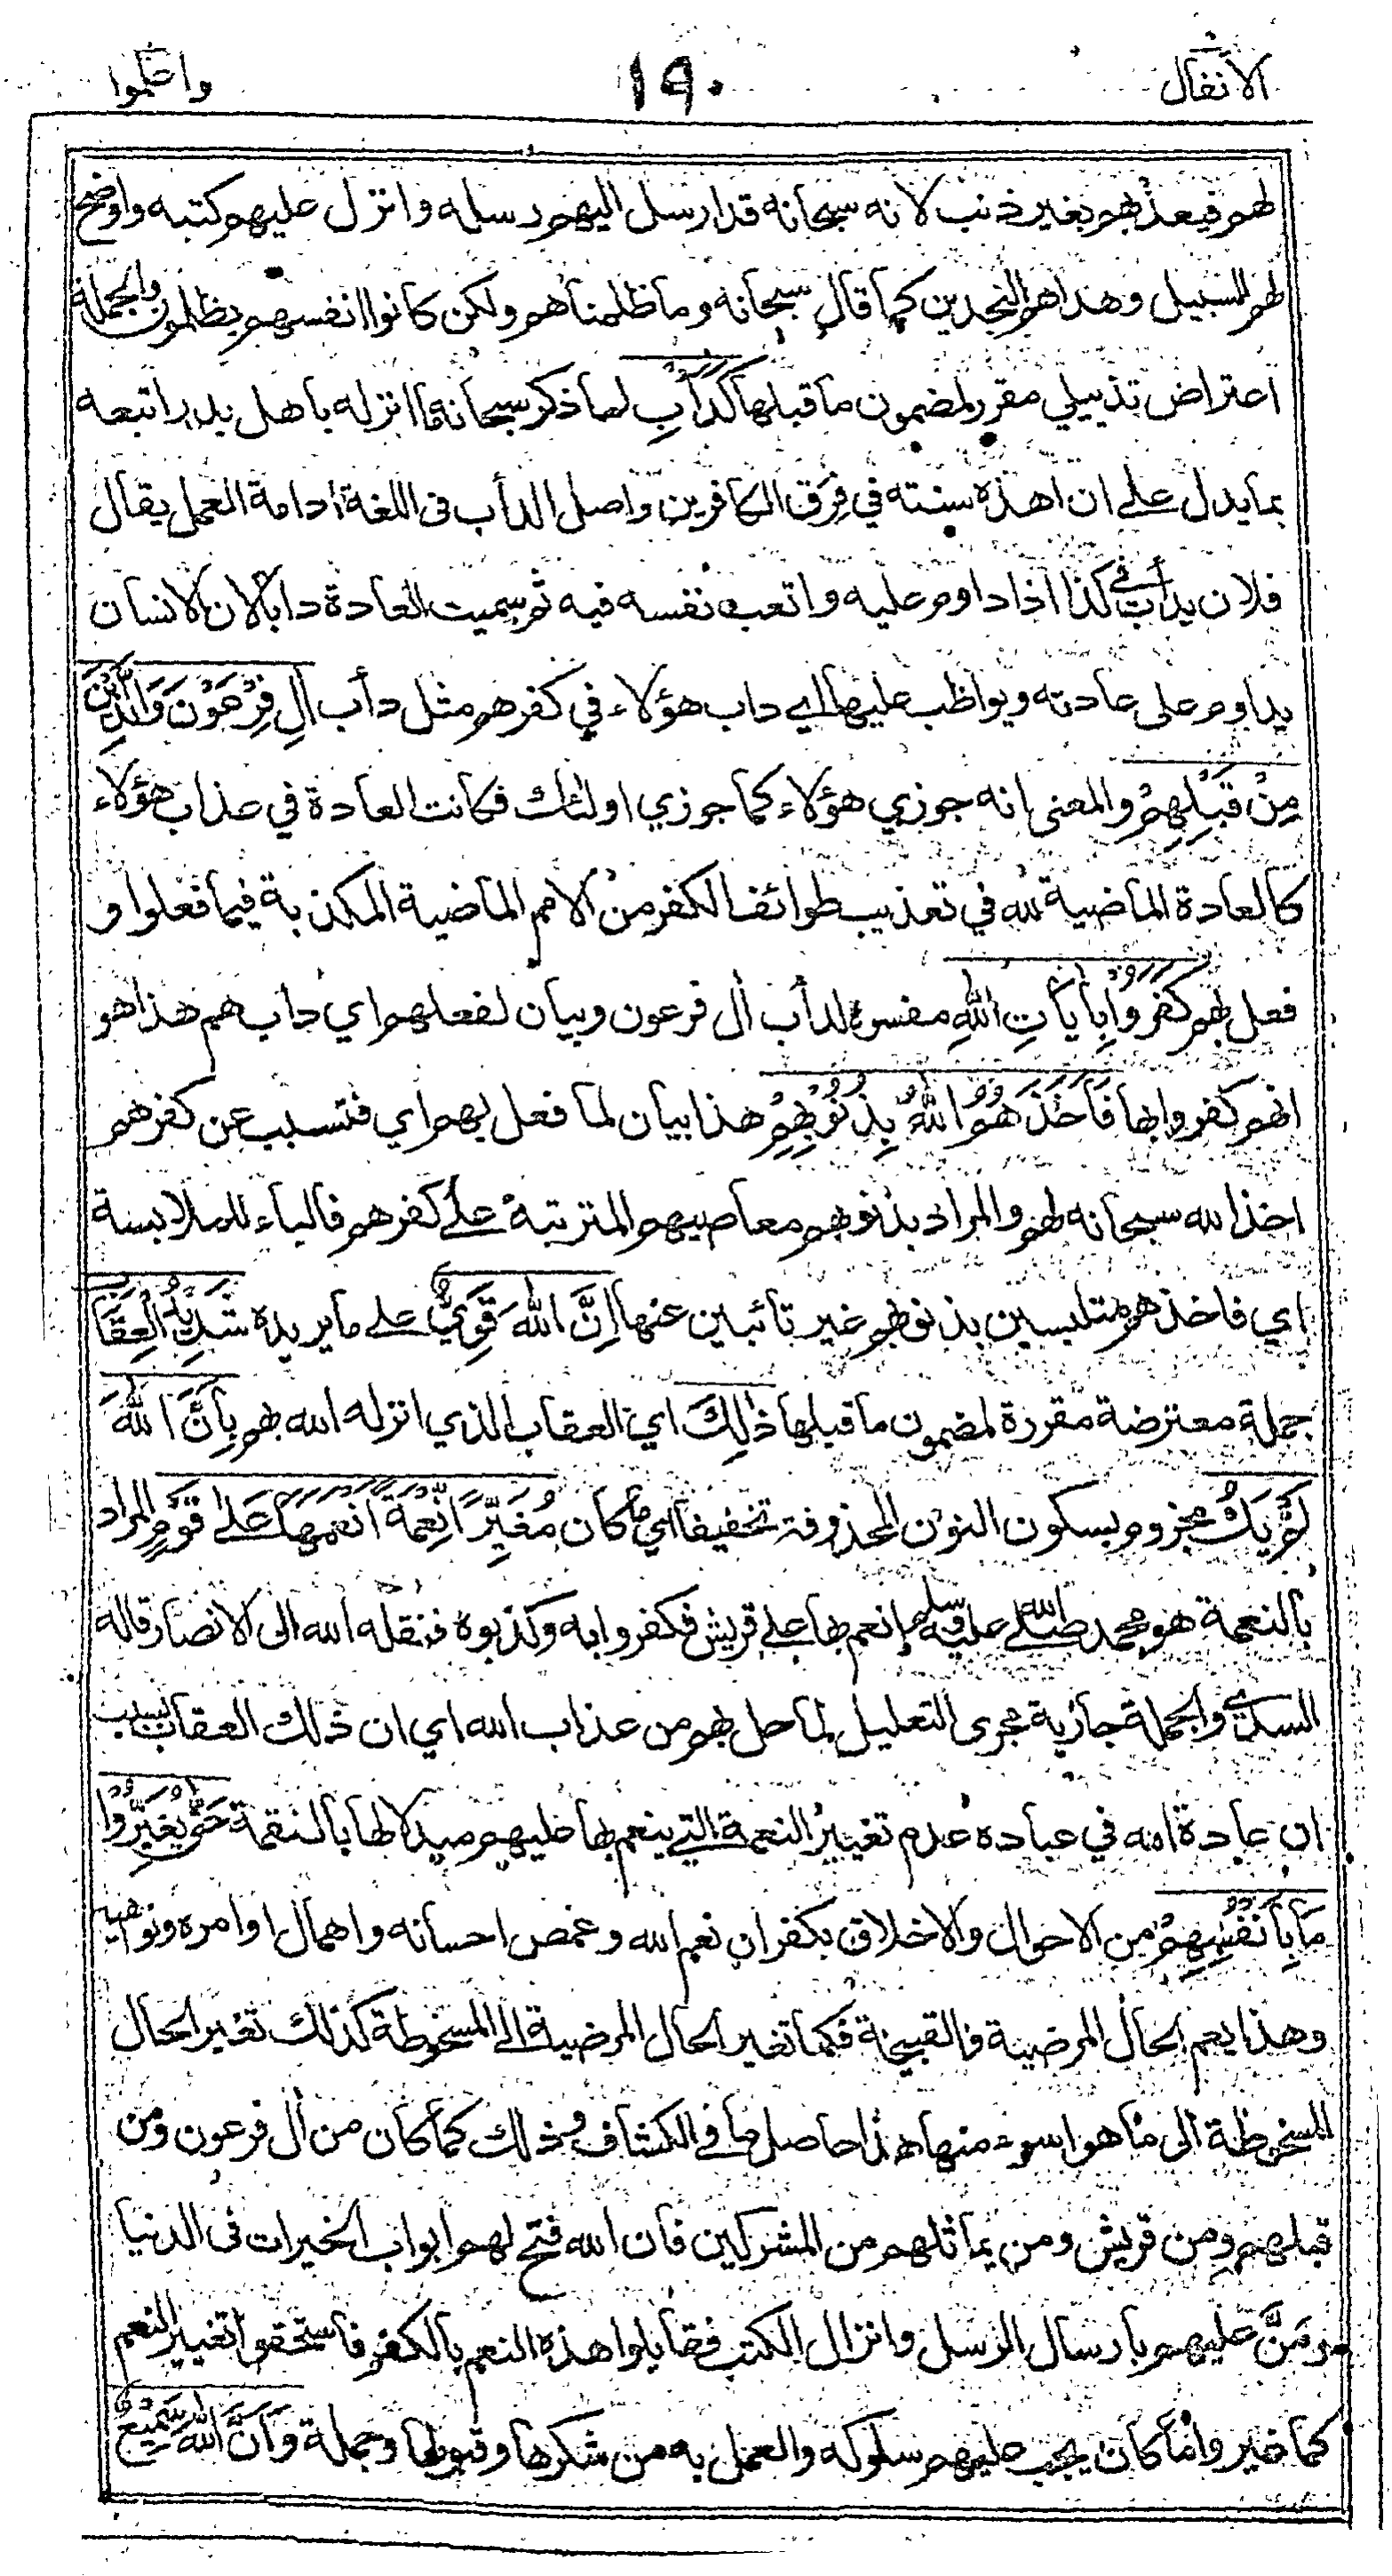 الأنفال ١٩٠ واعلموا
لهم فيعذبهم بغير ذنب لانه سبحانه قد ارسل اليهم رسله وانزل عليهم كتبه واوضح
لهم السبيل وهداهم النجدين كما قال سبحانه وما ظلمناهم ولكن كانوا انفسهم يظلمون والجملة
اعتراض تذييلي مقرر لمضمون ما قبلها كَدَأْبِ لما ذكر سبحانه ما انزله باهل بدر اتبعه
بما يدل على ان هذه سنته في فِرَق الكافرين واصل الدأب فى اللغة ادامة العمل يقال
فلان يدأب في كذا اذا داوم عليه واتعب نفسه فيه ثم سميت العادة دابا لان الانسان
يداوم على عادته ويواظب عليها اي داب هؤلاء في كفرهم مثل دأب آلِ فِرْعَوْنَ وَالَّذِيْنَ
مِنْ قَبْلِهِمْ والمعنى انه جوزي هؤلاء كما جوزي اولئك فكانت العادة في عذاب هؤلاء
كالعادة الماضية لله في تعذيب طوائف الكفر من الامم الماضية المكذبة فيما فعلوا و
فعل بهم كَفَرُوْا بِاٰيَاتِ اللّٰهِ مفسرة لدأب آل فرعون وبيان لفعلهم اي دأبهم هذا هو
انهم كفروا بها فَأَخَذَهُمُ اللّٰهُ بِذُنُوْبِهِمْ هذا بيان لما فعل بهم اي فتسبب عن كفرهم
اخذ الله سبحانه لهم والمراد بذنوبهم معاصيهم المترتبة على كفرهم فالباء للملابسة
اي فاخذهم متلبسين بذنوبهم غير تائبين عنها اِنَّ اللّٰهَ قَوِيٌّ على ما يريده شَدِيْدُ الْعِقَابِ
جملة معترضة مقررة لمضمون ما قبلها ذٰلِكَ اي العقاب الذي انزله الله بهم بِأَنَّ اللّٰهَ
لَمْ يَكُ مجزوم بسكون النون المحذوفة تخفيفا اي ما كان مُغَيِّرًا نِّعْمَةً اَنْعَمَهَا عَلٰى قَوْمٍ المراد
بالنعمة هو محمد صلى الله عليه وسلم انعم بها على قريش فكفروا به وكذبوه فنقله الله الى الانصار قاله
السدي والجملة جارية مجرى التعليل لما حل بهم من عذاب الله اي ان ذلك العقاب بسبب
ان عادة الله في عباده عدم تغيير النعمة التي ينعم بها عليهم مبدلا لها بالنقمة حَتّٰى يُغَيِّرُوْا
مَا بِأَنْفُسِهِمْ من الاحوال والاخلاق بكفران نعم الله وغمص احسانه واهمال اوامره ونواهيه
وهذا يعم الحال المرضية والقبيحة فكما تغير الحال المرضية الى المسخوطة كذلك تغير الحال
المسخوطة الى ما هو اسوء منها هذا حاصل ما في الكشاف وذلك كما كان من آل فرعون ومن
قبلهم ومن قريش ومن يماثلهم من المشركين فان الله فتح لهم ابواب الخيرات في الدنيا
ومَنَّ عليهم بارسال الرسل وانزال الكتب فقابلوا هذه النعم بالكفر فاستحقوا تغيير النعم
كما غيروا ما كان يجب عليهم سلوكه والعمل به من شكرها وقبولها وجملة وَأَنَّ اللّٰهَ سَمِيْعٌ